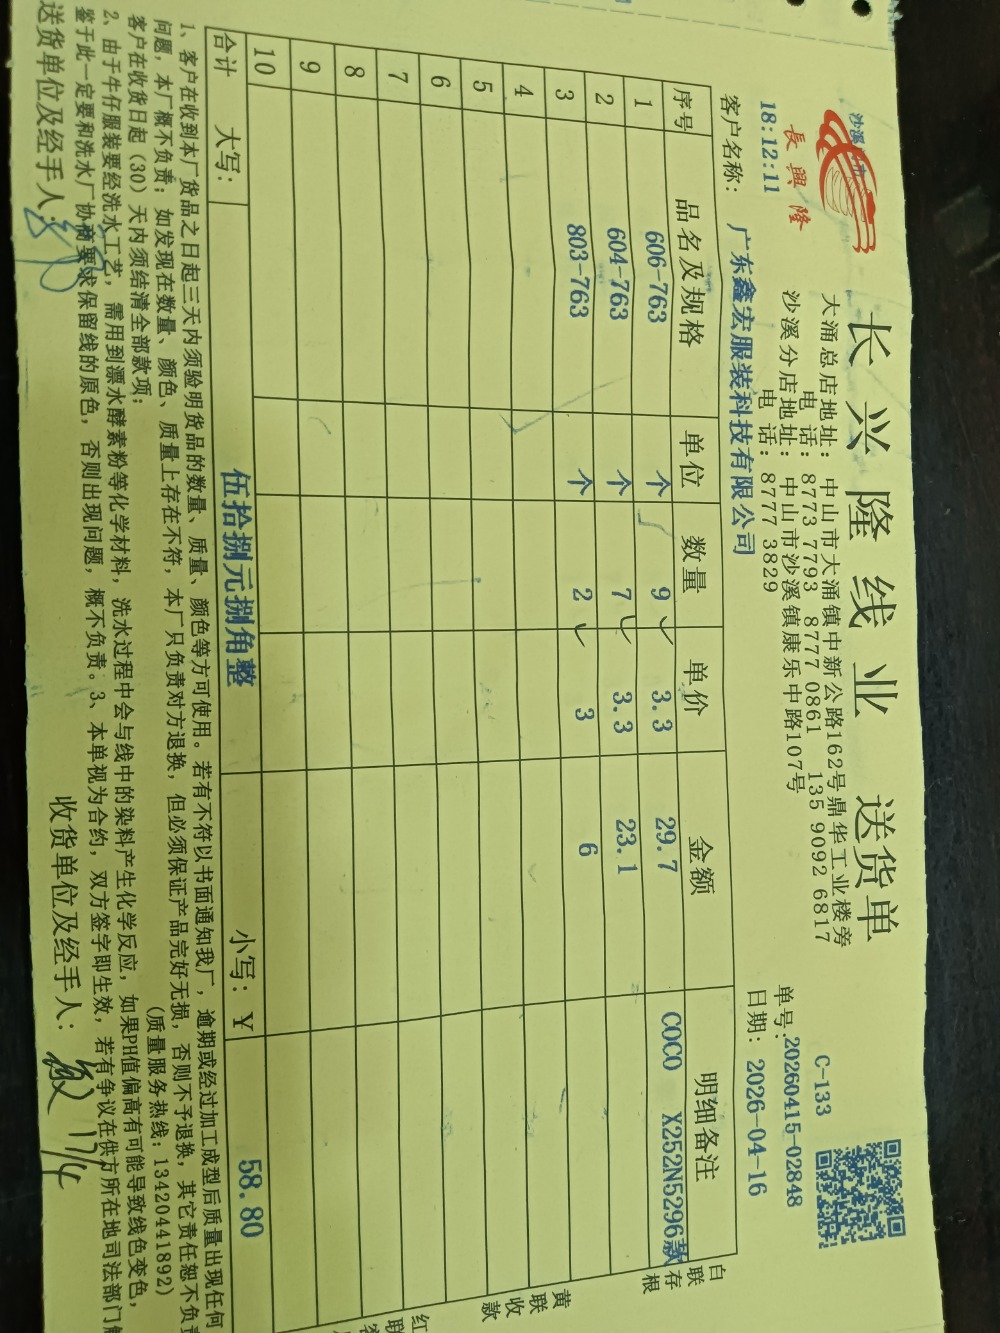 长兴隆线业 送货单
沙溪
長興隆
18:12:11
大涌总店地址：中山市大涌镇中新公路162号鼎华工业楼旁
电话：8773 7793 8777 0861 135 9092 6817
沙溪分店地址：中山市沙溪镇康乐中路107号
电话：8777 3829
C-133
单号:20260415-02848
日期：2026-04-16
客户名称：广东鑫宏服装科技有限公司
序号 品名及规格 单位 数量 单价 金额 明细备注
1 606-763 个 9 3.3 29.7 COCO X252N5296款
2 604-763 个 7 3.3 23.1
3 803-763 个 2 3 6
4
5
6
7
8
9
10
合计 大写：伍拾捌元捌角整 小写：¥ 58.80
白联存根
黄联收款
红联
1、客户在收到本厂货品之日起三天内须验明货品的数量、质量、颜色等方可使用。若有不符以书面通知我厂，逾期或经过加工成型后质量出现任何
问题，本厂概不负责；如发现在数量、颜色、质量上存在不符，本厂只负责对方退换，但必须保证产品完好无损，否则不予退换，其它责任恕不负责
客户在收货日起（30）天内须结清全部款项； （质量服务热线：13420441892）
2、由于牛仔服装要经洗水工艺，需用到漂水酵素粉等化学材料，洗水过程中会与线中的染料产生化学反应，如果PH值偏高有可能导致线色变色，
鉴于此一定要和洗水厂协商要求保留线的原色，否则出现问题，概不负责。3、本单视为合约，双方签字即生效，若有争议在供方所在地司法部门
送货单位及经手人： 收货单位及经手人： 17/4